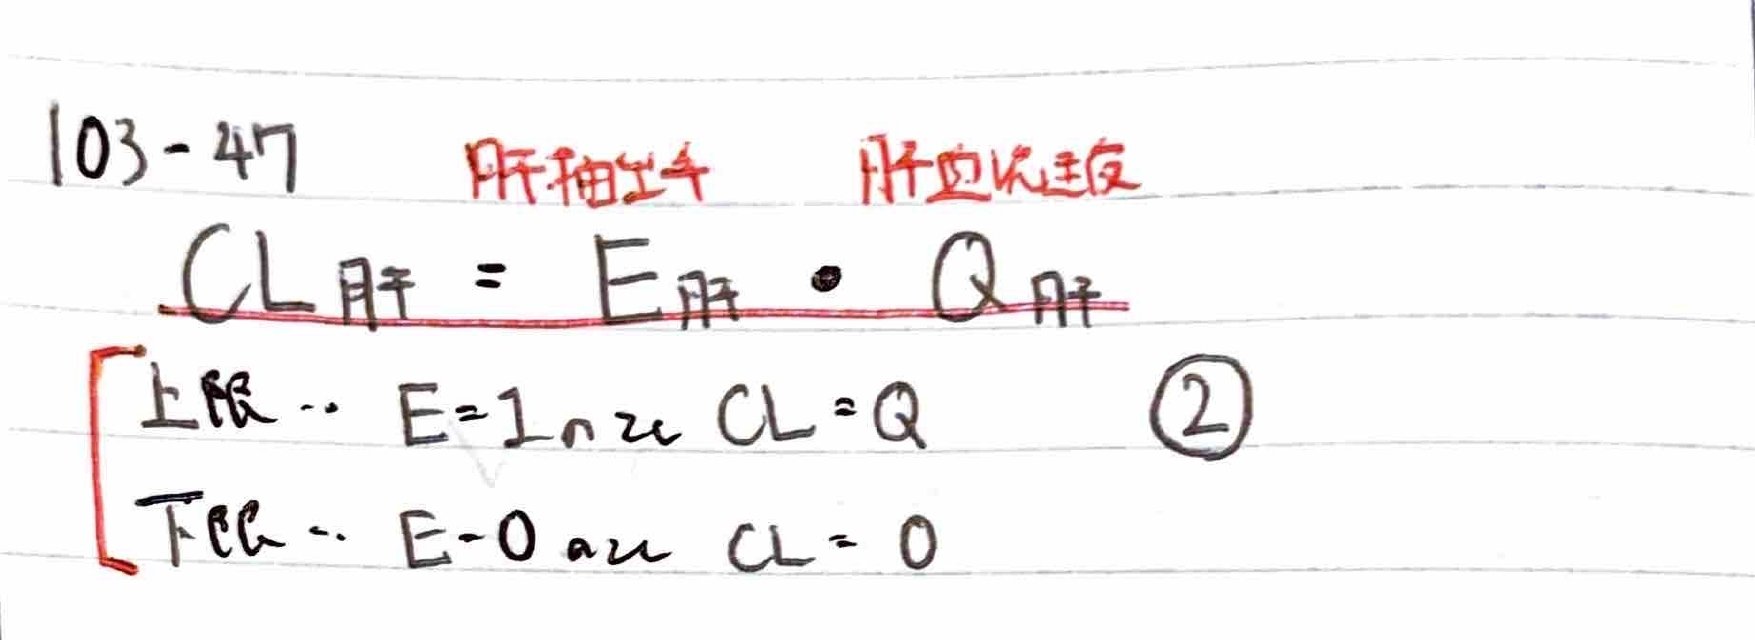 103-47
肝抽出率 肝血流速度
CL肝 = E肝 • Q肝
上限… E=1のとき CL=Q ②
下限… E=0のとき CL=0